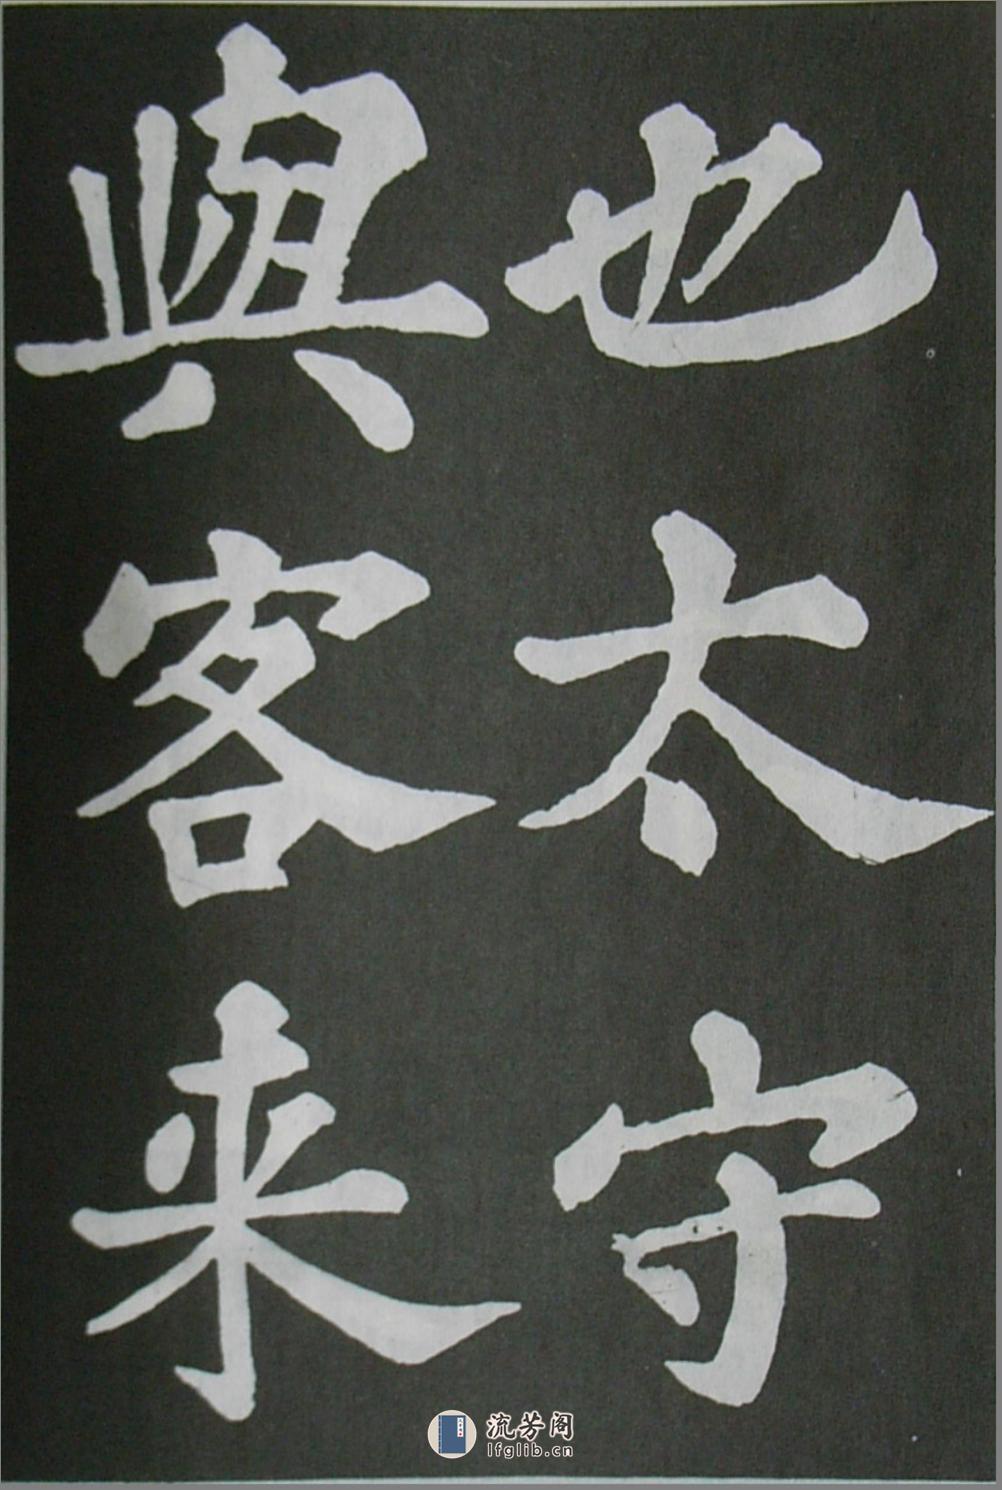 也太守
與客来
流芳阁
lfglib.cn